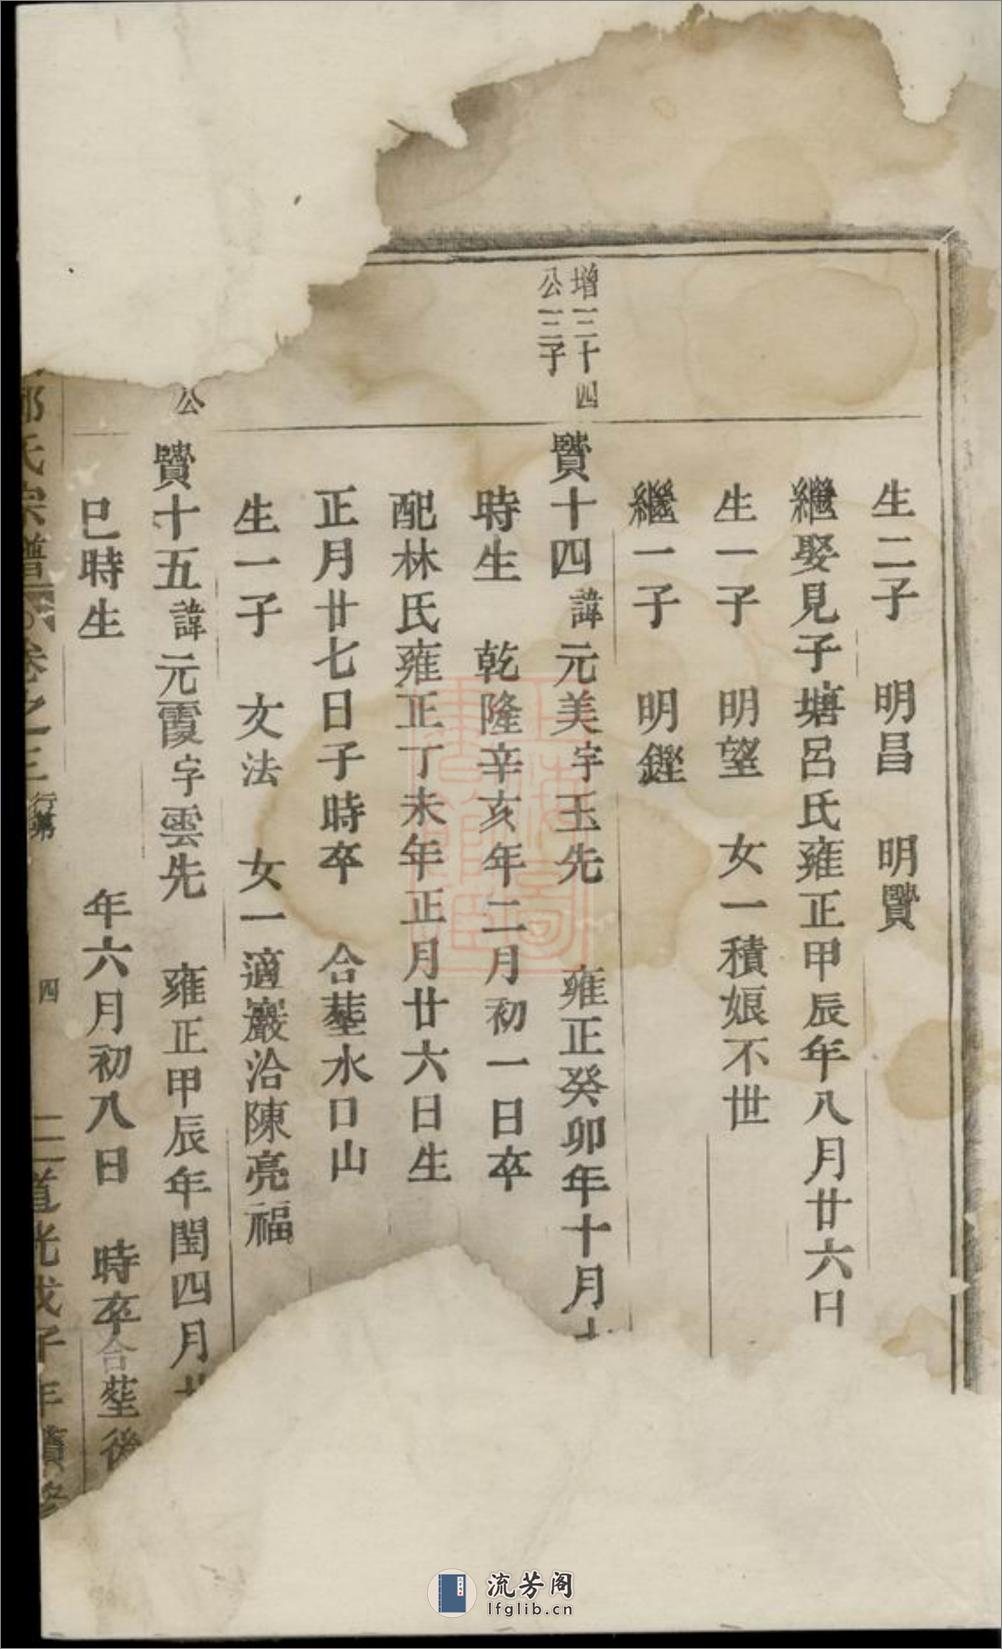 生二子 明昌 明贒
繼娶見子塘呂氏雍正甲辰年八月廿六日
生一子 明望 女一積娘不世
繼一子 明鏗
增三十四
公三子
贒十四諱元美字玉先 雍正癸卯年十月
時生 乾隆辛亥年二月初一日卒
配林氏雍正丁未年正月廿六日生
正月廿七日子時卒 合塟水口山
生一子 文法 女一適巖洽陳亮福
公
贒十五諱元霞字雲先 雍正甲辰年閏四月
巳時生 年六月初八日 時卒合塟後
氏宗譜 卷之三 行第 四 道光戊子年續修
流芳阁
lfglib.cn